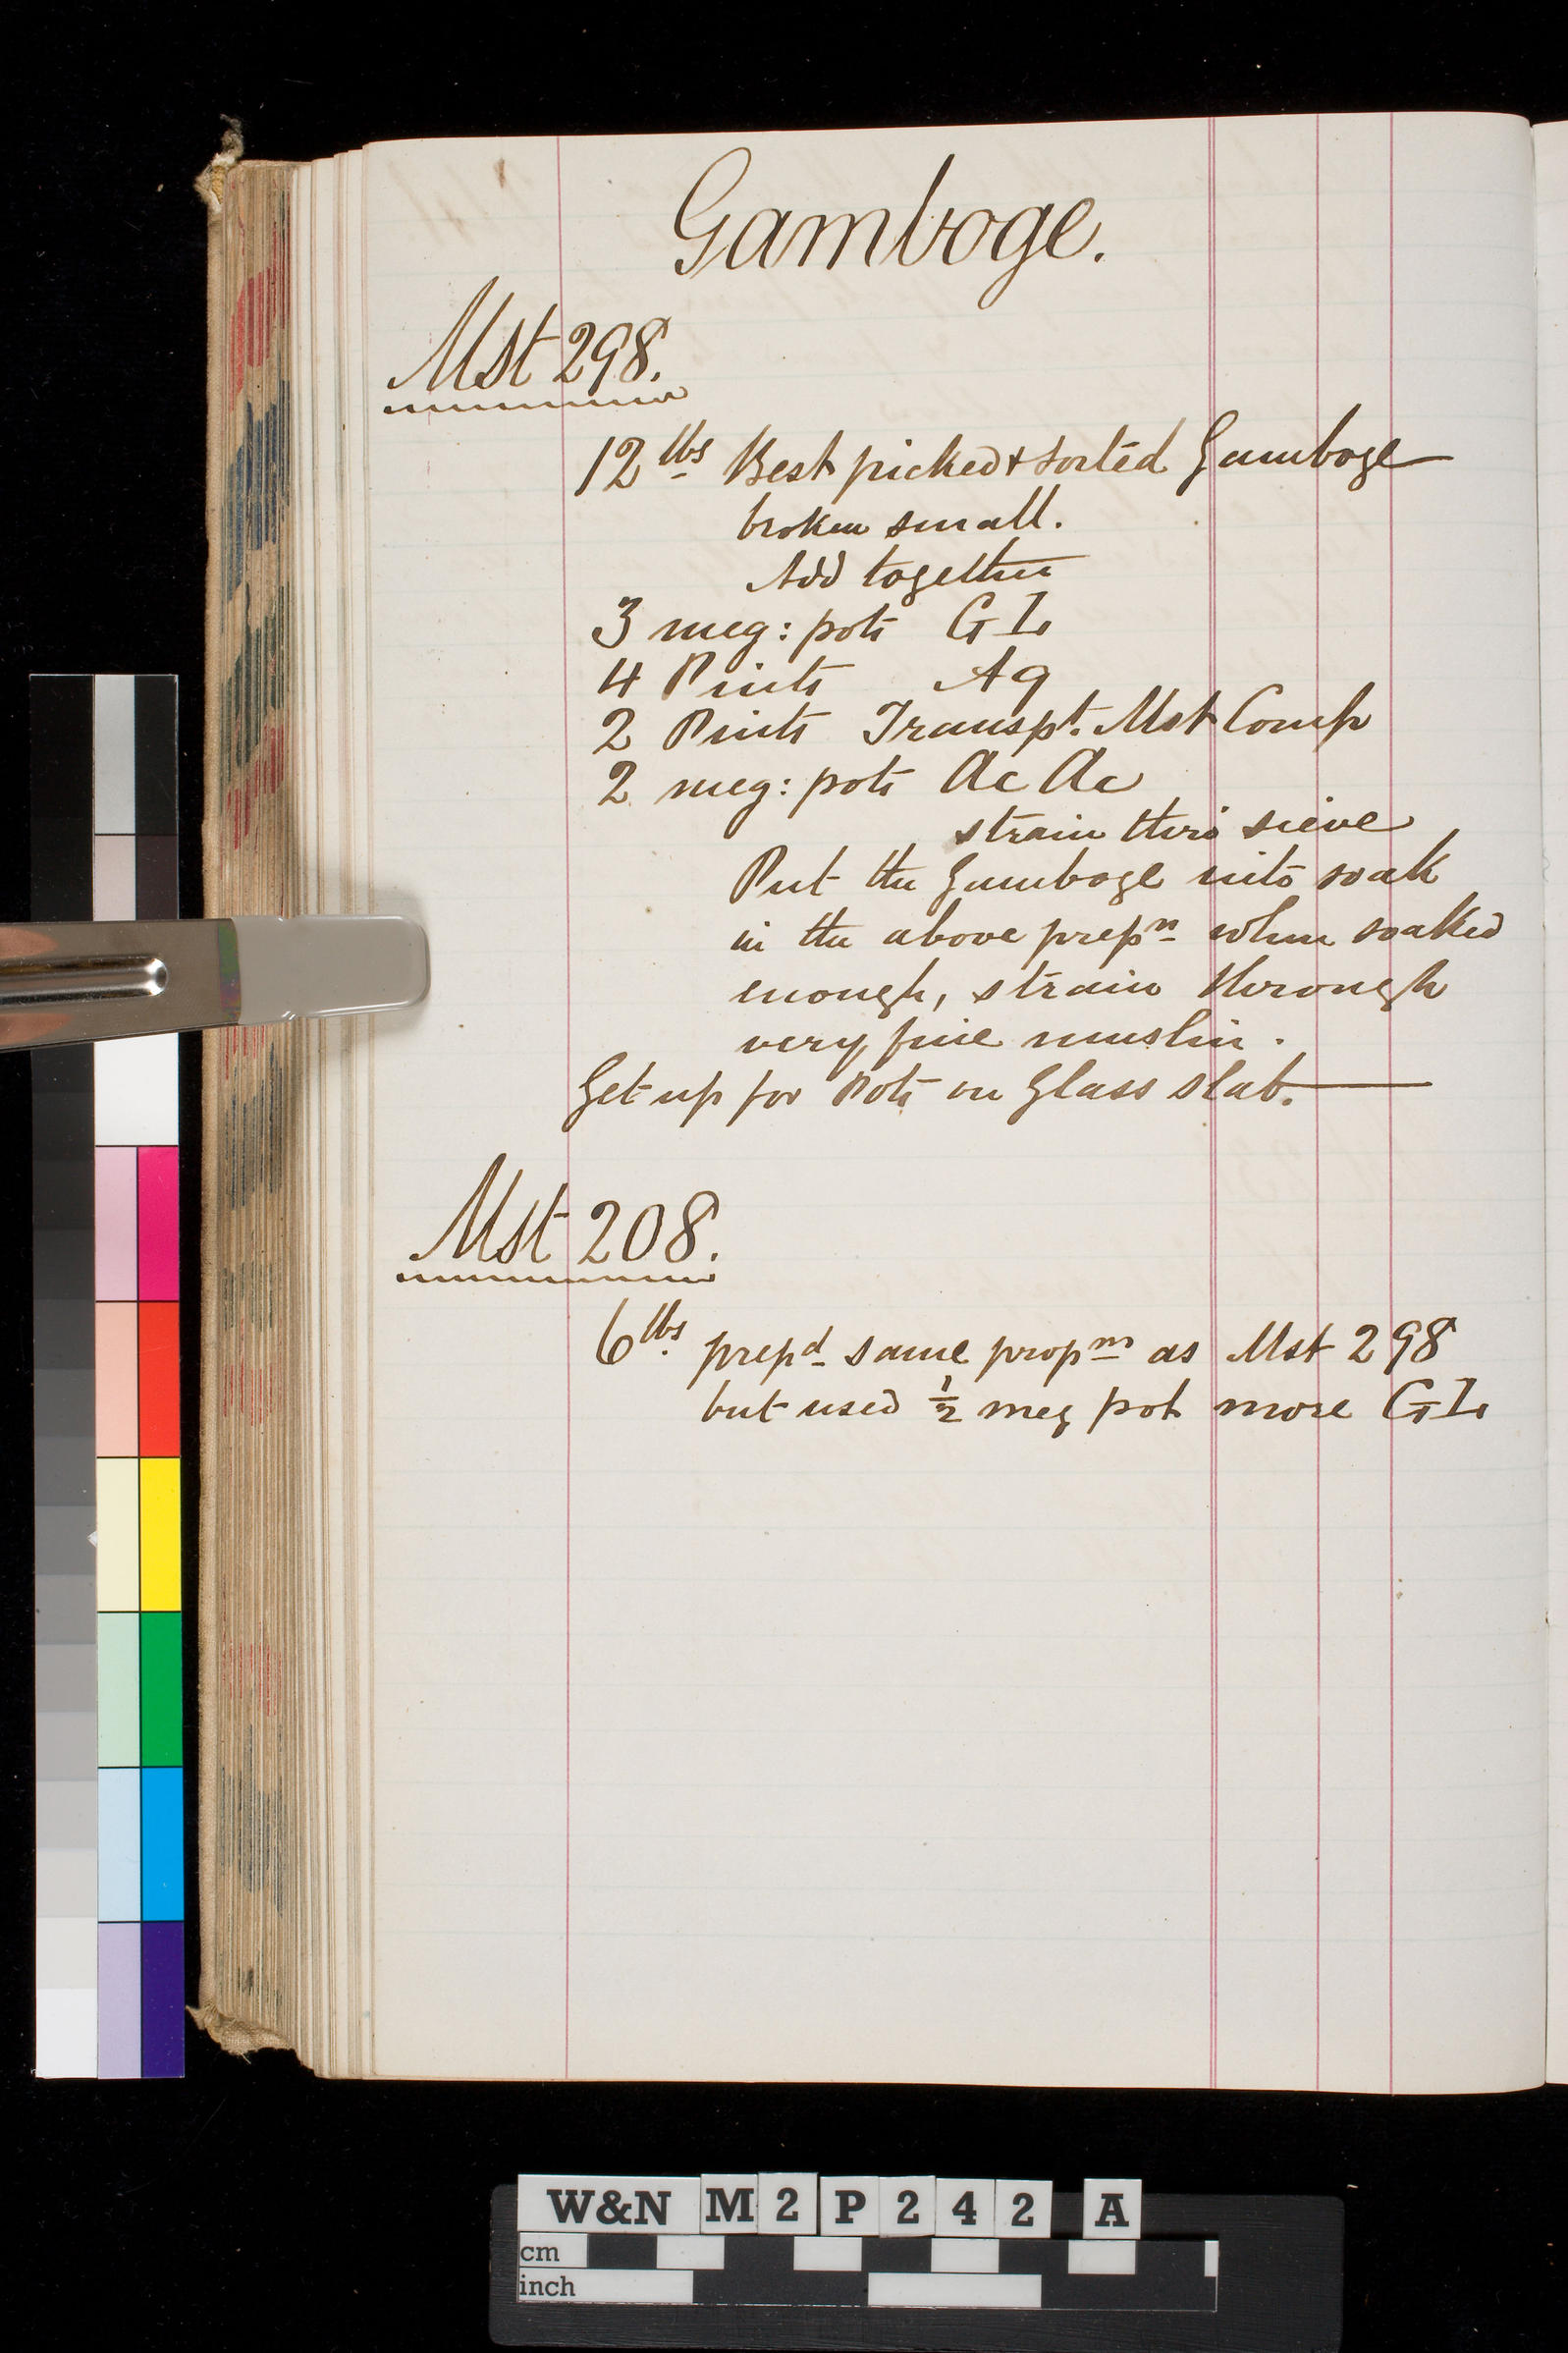 Gamboge.
Mst 298.
12 lbs Best picked & sorted Gamboge
broken small.
Add together
3 meg: pots GL
4 Pints Aq
2 Pints Transpt. Mst Comp
2 meg: pots Ac Ac
strain thro' sieve
Put the Gamboge into soak
in the above prepn when soaked
enough, strain through
very fine muslin.
Get up for Pots on Glass slab.
Mst 208.
6 lbs. prepd same propns as Mst 298
but used ½ meg pot more GL
W&N M2P242 A
cm
inch